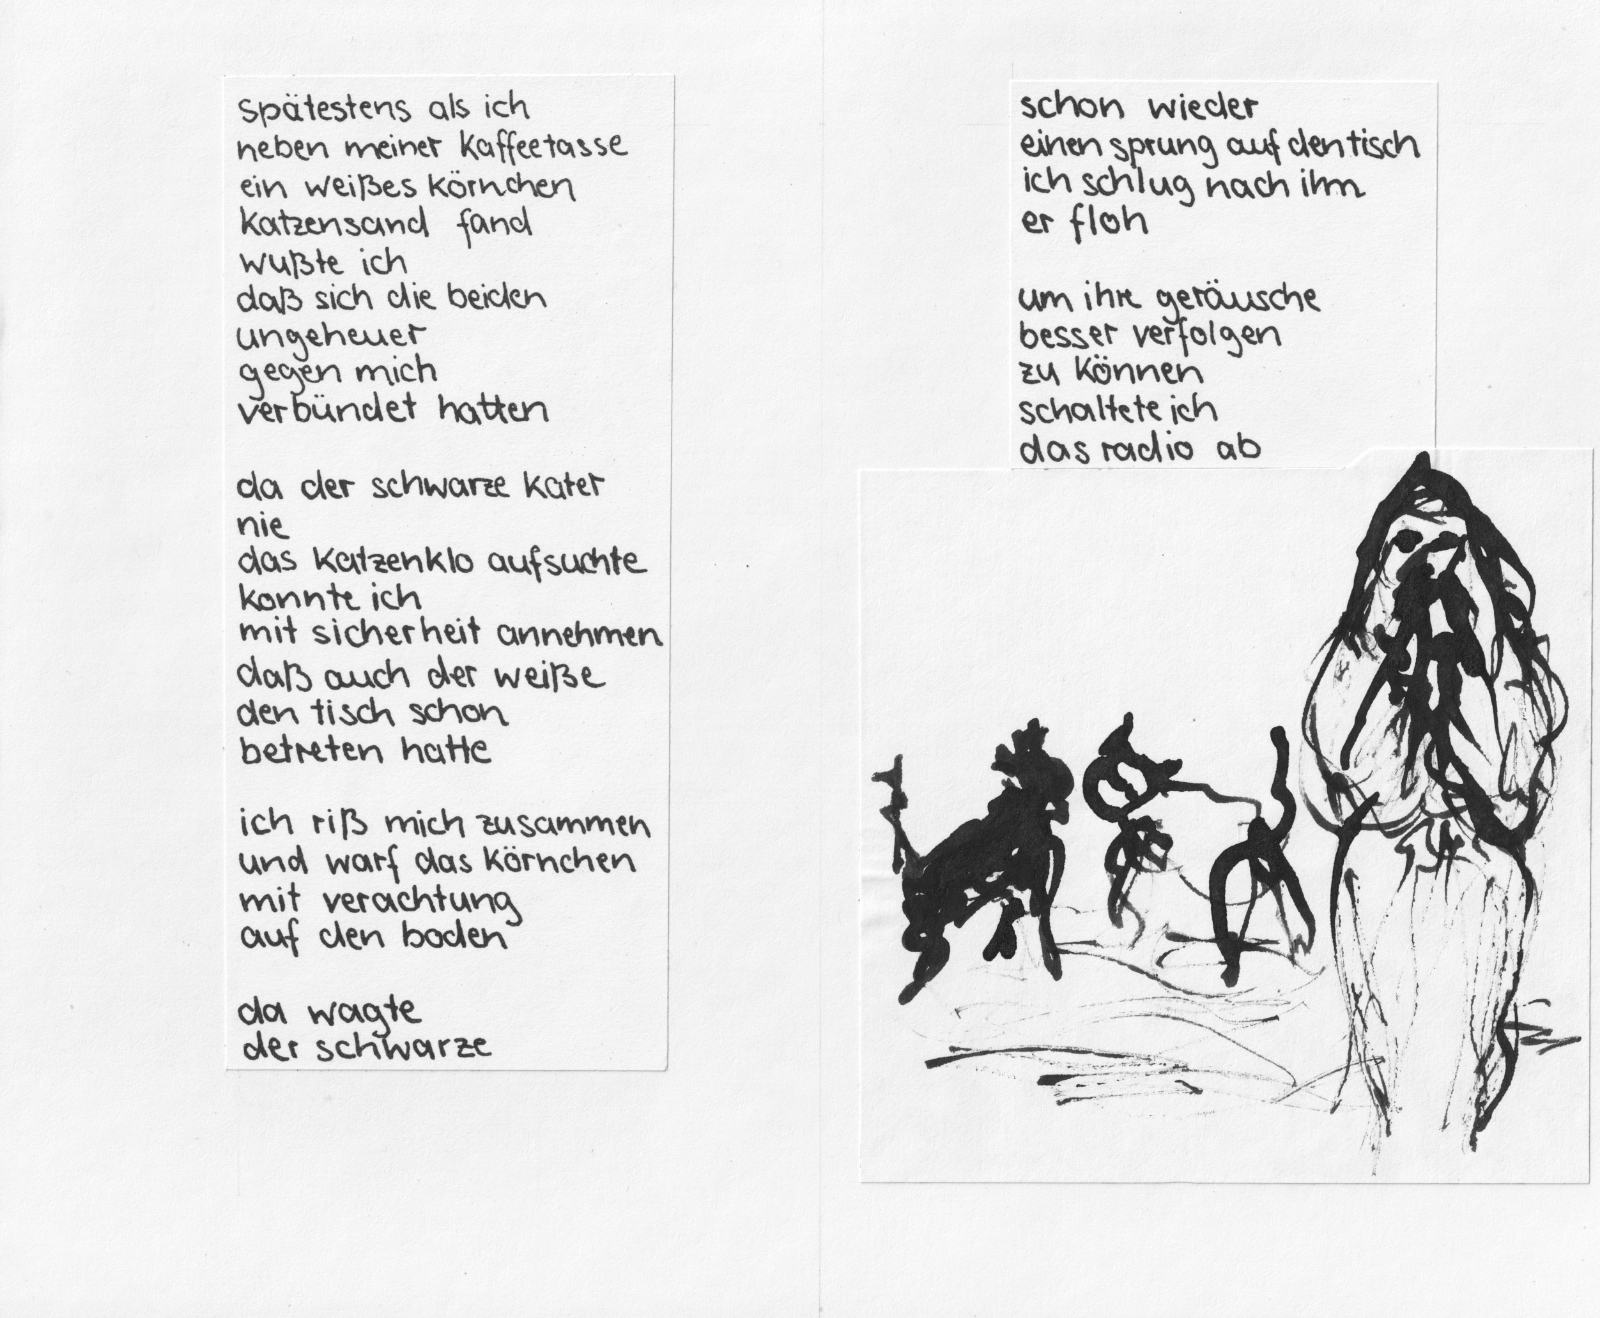 spätestens als ich
neben meiner kaffeetasse
ein weißes körnchen
katzensand fand
wußte ich
daß sich die beiden
ungeheuer
gegen mich
verbündet hatten
da der schwarze kater
nie
das katzenklo aufsuchte
konnte ich
mit sicherheit annehmen
daß auch der weiße
den tisch schon
betreten hatte
ich riß mich zusammen
und warf das körnchen
mit verachtung
auf den boden
da wagte
der schwarze
schon wieder
einen sprung auf den tisch
ich schlug nach ihm
er floh
um ihre geräusche
besser verfolgen
zu können
schaltete ich
das radio ab